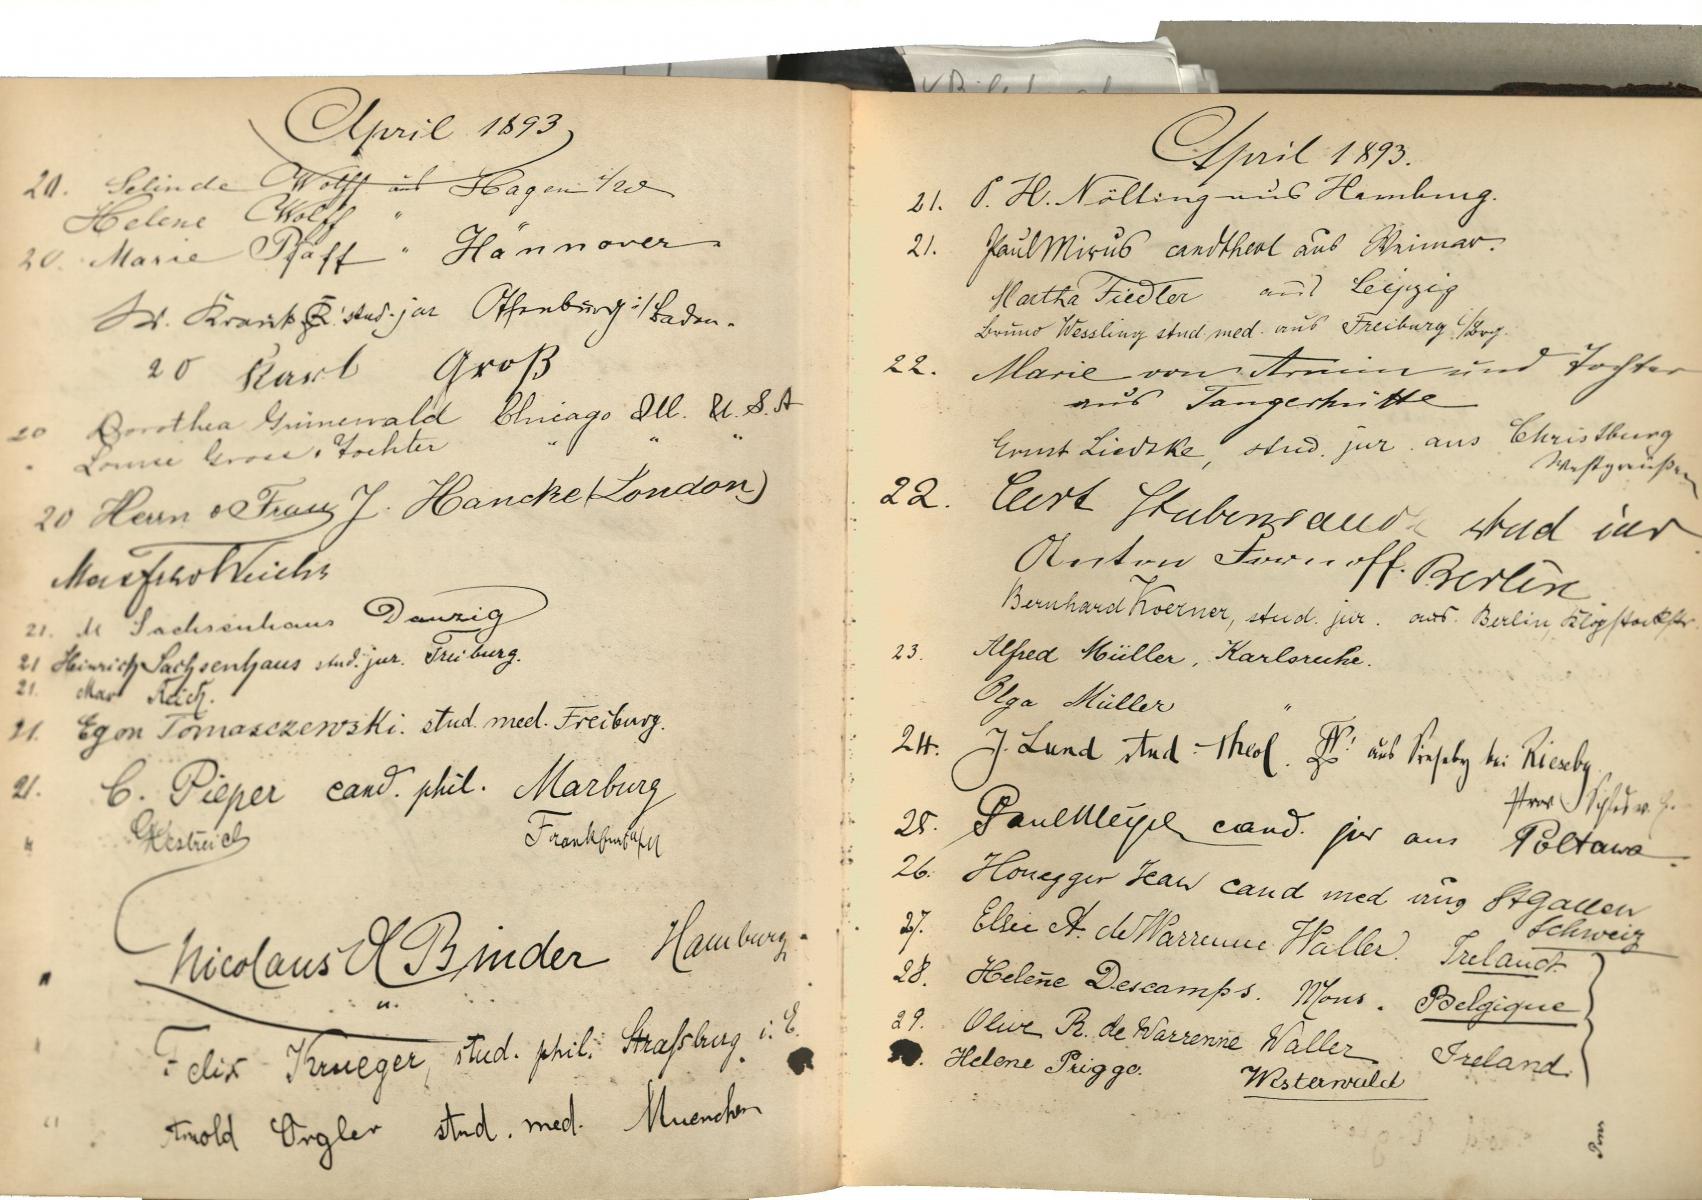 April 1893
20. Selinde Wolff aus Hagen i/W
Helene Wolff "
20. Marie Pfaff " Hannover
stud. jur Offenburg i/Baden.
20 Karl Groß
20 Dorothea Grünewald Chicago Ill. U.S.A
" Louise Gross u. Tochter " " "
20 Herrn & Frau J. Hancke (London)
21. M Sachsenhaus Danzig
21 Heinrich Sachsenhaus stud. jur. Freiburg.
21. Max Reich.
21. Egon Tomasczewski. stud. med. Freiburg.
21. C. Pieper cand. phil. Marburg
" Oestreich Frankfurt a/M
" Nicolaus Binder Hamburg.
u.
Felix Krueger, stud. phil. Strassburg i. E.
" Arnold Orgler stud. med. Muenchen
April 1893.
21. P. H. Nölting aus Hamburg.
21. Paul Mirus cand theol aus Weimar.
Martha Fiedler aus Leipzig
Bruno Wessling stud. med. aus Freiburg i/Brg.
22. Marie von Arnim und Tochter
aus Tangerhütte
Ernst Liedtke, stud. jur. aus Christburg
Westpreußen
22. Curt stud iur
Anton Berlin
Bernhard Koerner, stud. jur. aus Berlin, Klopstockstr.
23. Alfred Müller, Karlsruhe.
Olga Müller "
24. J. Lund stud theol. aus bei Rieseby
Prov Schlesw. H.
25. Paul cand. jur aus Poltawa.
26. Honegger Jean cand med aus St Gallen
Schweiz
27. Elsie A. de Warrenne Waller. Ireland.
28. Helene Descamps. Mons. Belgique
29. Olive R. de Warrenne Waller Ireland.
Helene Prigge. Westerwald